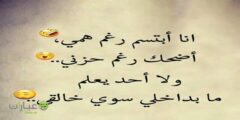 انا أبتسم رغم همي،
أضحك رغم حزني..
ولا أحد يعلم
ما بداخلي سوي خالقي..